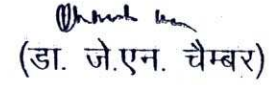 (डा. जे.एन. चैम्बर)